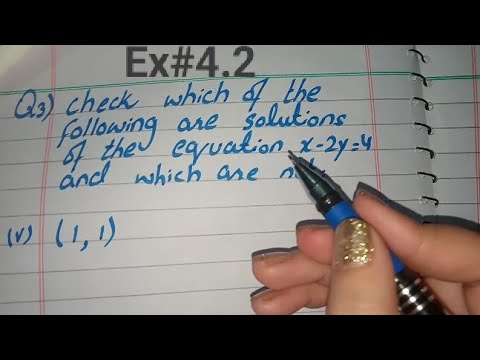 Ex#4.2
Q3) check which of the
following are solutions
of the equation x-2y=4
and which are
(v) (1,1)